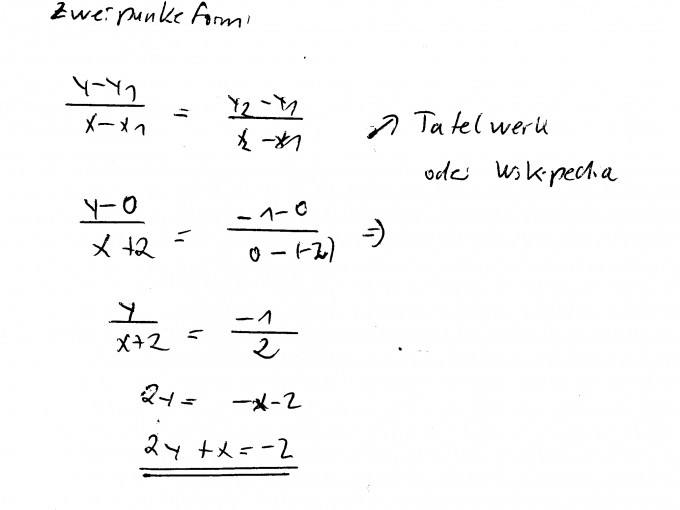 Zweipunkteform:
y-y1 / x-x1 = y2-y1 / x2-x1
↗ Tafelwerk
oder Wikipedia
y-0 / x+2 = -1-0 / 0-(-2) ⇒
y / x+2 = -1 / 2
2y = -x-2
2y + x = -2